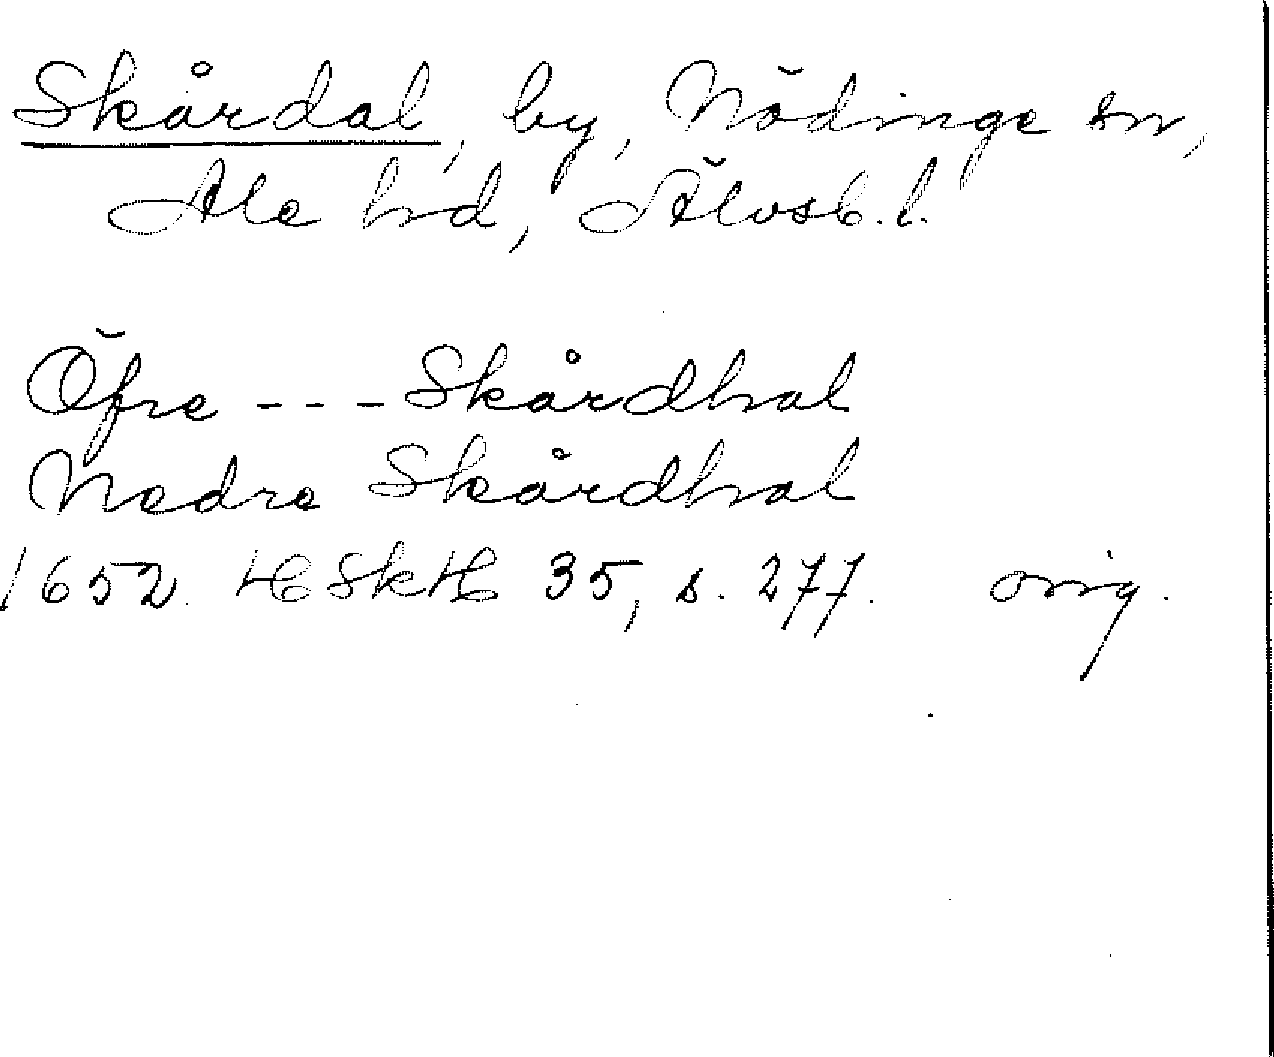 Skårdal, by, Nödinge sn,
Ale hd, Älvsb. l.
Öfre --- Skårdhal
Nedre Skårdhal
1652. HSkH 35, s. 277. orig.